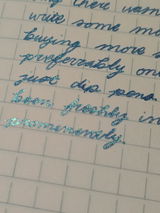 there
write some m
buying more
preferreably on
just dip pens
been freshly in
phenomenally.